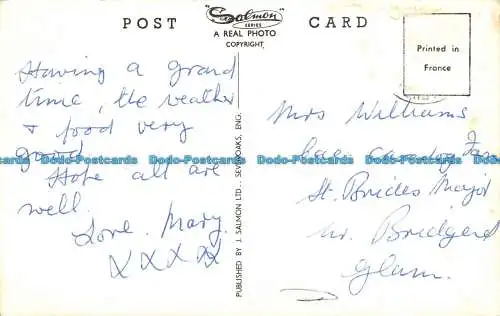 POST CARD
"Salmon"
SERIES
A REAL PHOTO
COPYRIGHT
Printed in
France
Having a grand
time, the weather
& food very
good
Hope all are
well.
Love. Mary.
XXXX
PUBLISHED BY J. SALMON LTD., SEVENOAKS, ENG.
Mrs Williams
Farm
St. Brides Major
Nr. Bridgend
Glam.
Dodo-Postcards Dodo-Postcards Dodo-Postcards Dodo-Postcards Dodo-Postcards Dodo-Postcards